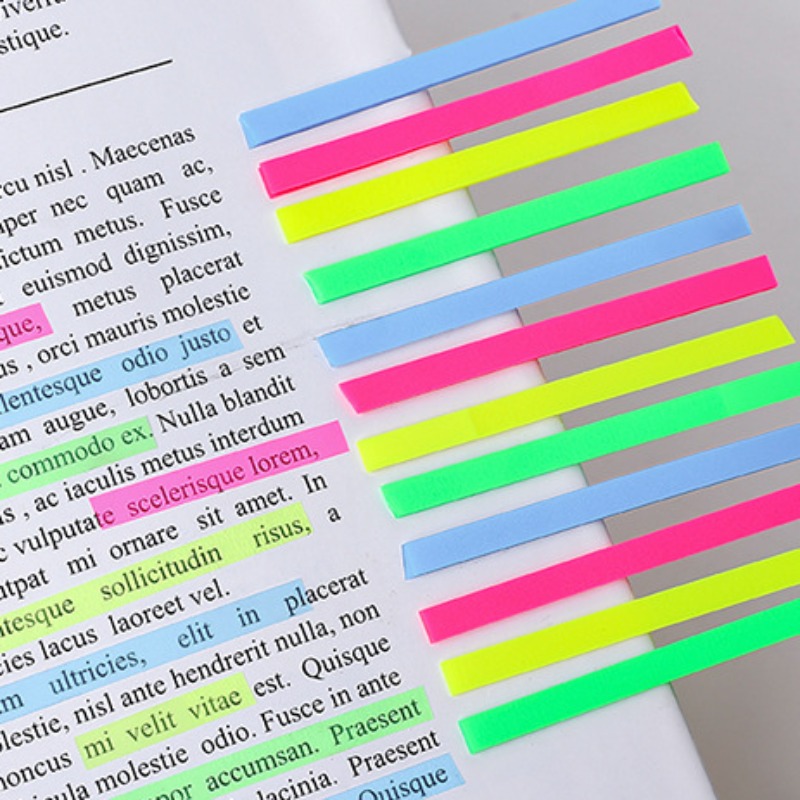 stique.
nisl . Maecenas
nec quam ac,
metus. Fusce
euismod dignissim,
metus placerat
, orci mauris molestie
odio justo et
augue, lobortis a sem
commodo ex. Nulla blandit
, ac iaculis metus interdum
scelerisque lorem,
mi ornare sit amet. In
sollicitudin risus, a
lacus laoreet vel.
ultricies, elit in placerat
, nisl ante hendrerit nulla, non
mi velit vitae est. Quisque
molestie odio. Fusce in ante
accumsan. Praesent
lacinia. Praesent
Quisque